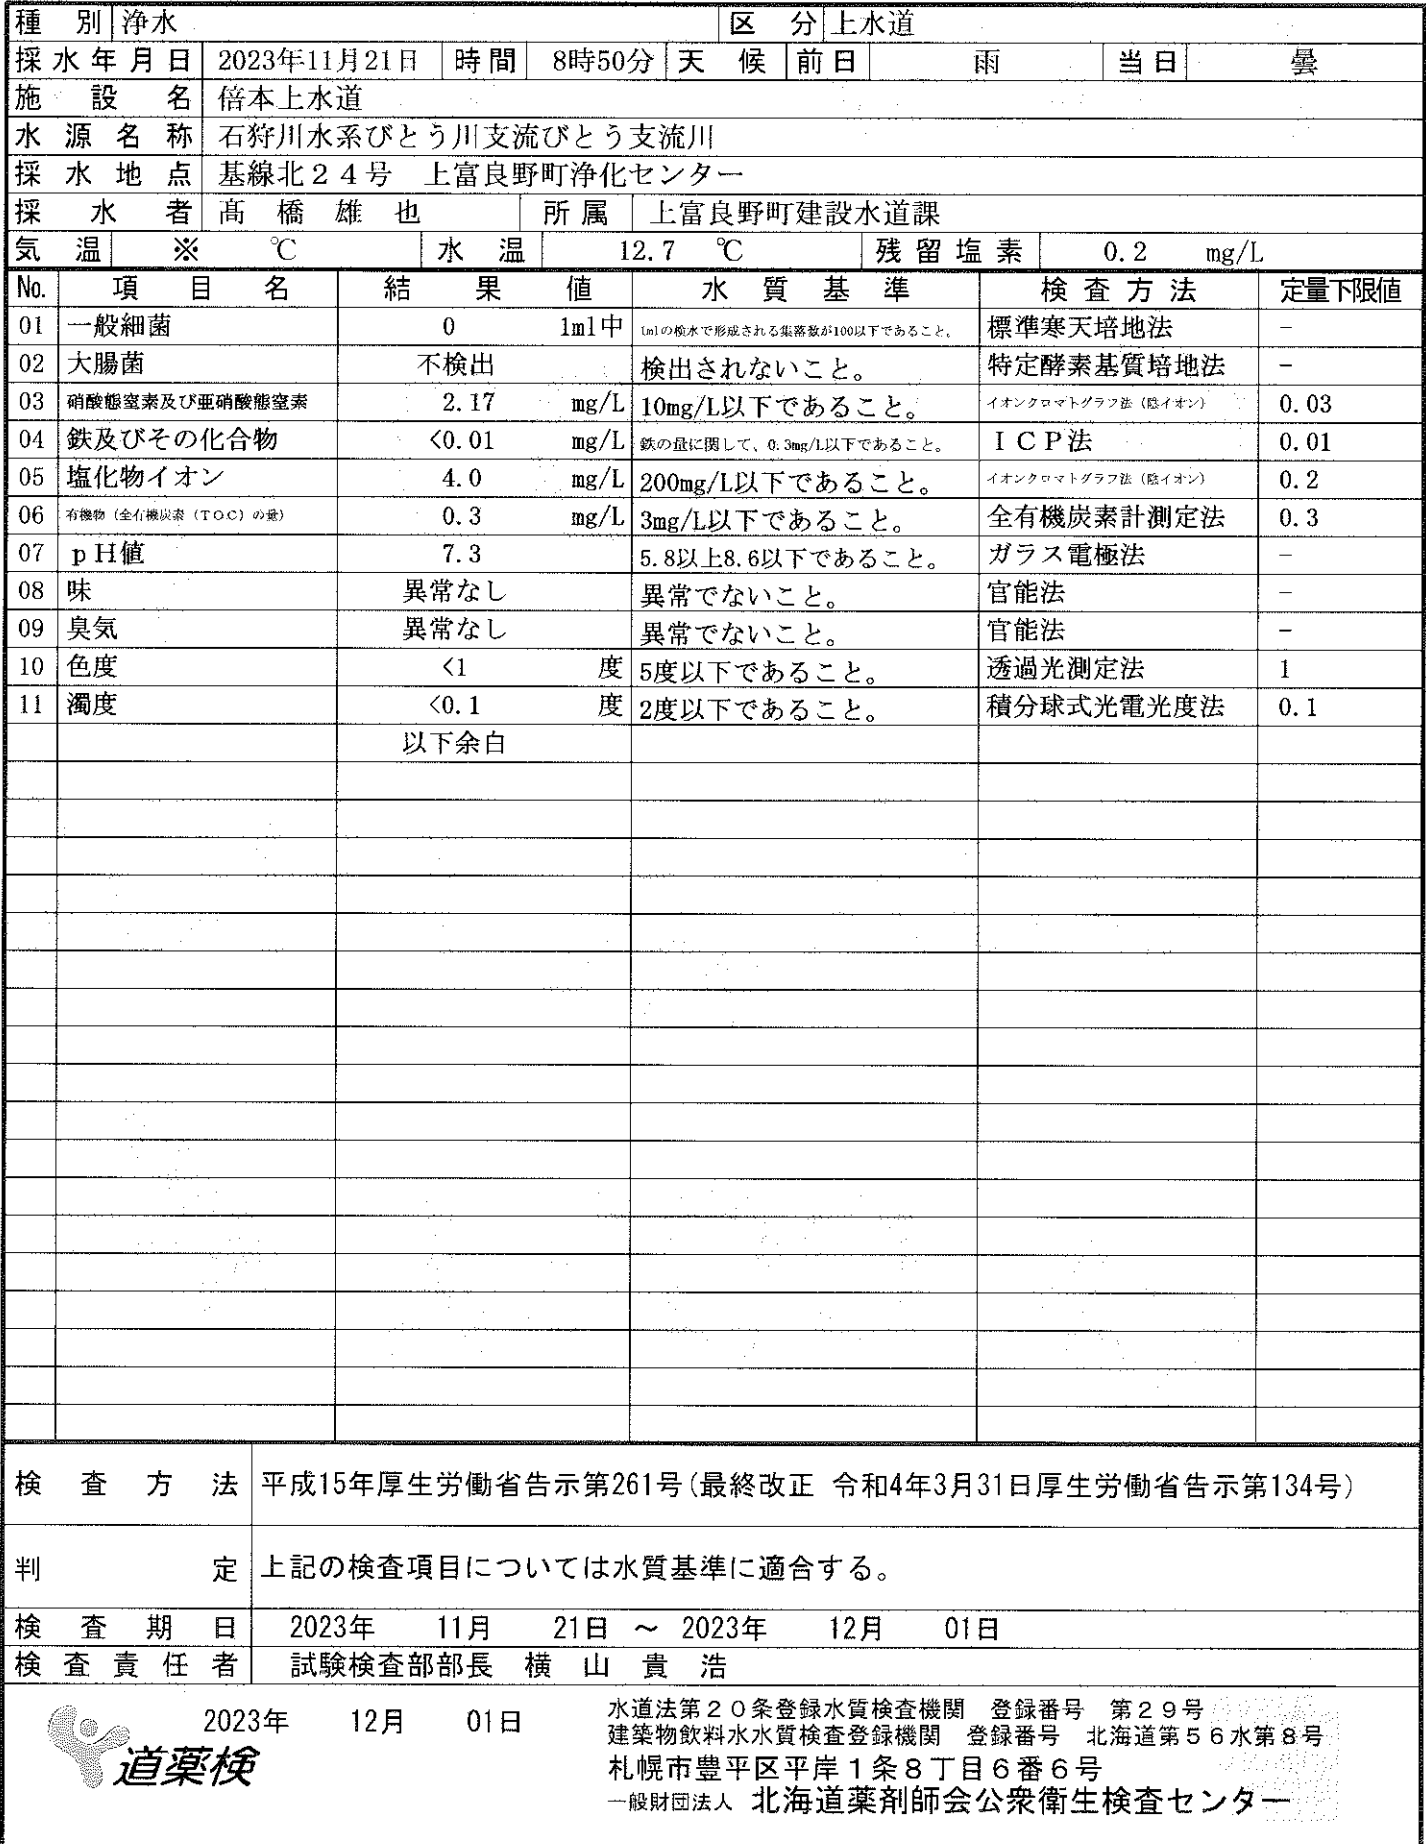 種別 浄水 区分 上水道
採水年月日 2023年11月21日 時間 8時50分 天候 前日 雨 当日 曇
施設名 倍本上水道
水源名称 石狩川水系びとう川支流びとう支流川
採水地点 基線北24号 上富良野町浄化センター
採水者 髙橋雄也 所属 上富良野町建設水道課
気温 ※ ℃ 水温 12.7 ℃ 残留塩素 0.2 mg/L
No. 項目名 結果値 水質基準 検査方法 定量下限値
01 一般細菌 0 1ml中 1mlの検水で形成される集落数が100以下であること。 標準寒天培地法 −
02 大腸菌 不検出 検出されないこと。 特定酵素基質培地法 −
03 硝酸態窒素及び亜硝酸態窒素 2.17 mg/L 10mg/L以下であること。 イオンクロマトグラフ法（陰イオン） 0.03
04 鉄及びその化合物 <0.01 mg/L 鉄の量に関して、0.3mg/L以下であること。 ICP法 0.01
05 塩化物イオン 4.0 mg/L 200mg/L以下であること。 イオンクロマトグラフ法（陰イオン） 0.2
06 有機物（全有機炭素（TOC）の量） 0.3 mg/L 3mg/L以下であること。 全有機炭素計測定法 0.3
07 pH値 7.3 5.8以上8.6以下であること。 ガラス電極法 −
08 味 異常なし 異常でないこと。 官能法 −
09 臭気 異常なし 異常でないこと。 官能法 −
10 色度 <1 度 5度以下であること。 透過光測定法 1
11 濁度 <0.1 度 2度以下であること。 積分球式光電光度法 0.1
以下余白
検査方法 平成15年厚生労働省告示第261号(最終改正 令和4年3月31日厚生労働省告示第134号)
判定 上記の検査項目については水質基準に適合する。
検査期日 2023年 11月 21日 ～ 2023年 12月 01日
検査責任者 試験検査部部長 横山貴浩
2023年 12月 01日
道薬検
水道法第20条登録水質検査機関 登録番号 第29号
建築物飲料水水質検査登録機関 登録番号 北海道第56水第8号
札幌市豊平区平岸1条8丁目6番6号
一般財団法人 北海道薬剤師会公衆衛生検査センター